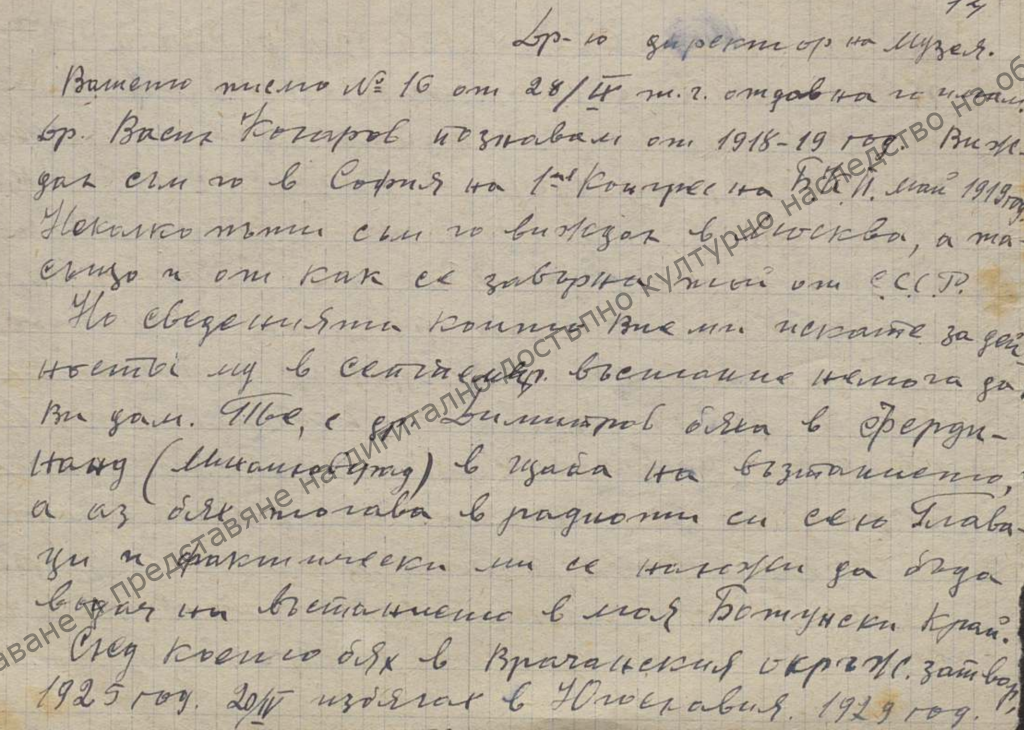 14
Др-ю директор на Музея.
Вашето писмо № 16 от 28/IX т.г. отдавна го
Др. Васил Коларов познавам от 1918-19 год. Виж-
дал съм го в София на 1вия Конгрес на Б.К.П. май 1919 год.
Неколко пъти съм го виждал в Москва, а та-
също и от как се завърна той от С.С.С.Р.
Но сведенията които Вие ми искате за дей-
ността му в септемвр. въстание немога да
Ви дам. Те, с др. Димитров бяха в Ферди-
нанд (Михайловград) в щаба на възтанието,
а аз бях тогава в родното си село Глава-
ци и фактически ми се наложи да бъда
водач на въстанието в моя Ботунски Край.
След което бях в Врачанския окръж. затвор,
1925 год. 20/IV избягах в Югославия. 1929 год.
аване и представяне на дигитално достъпно културно наследство на об